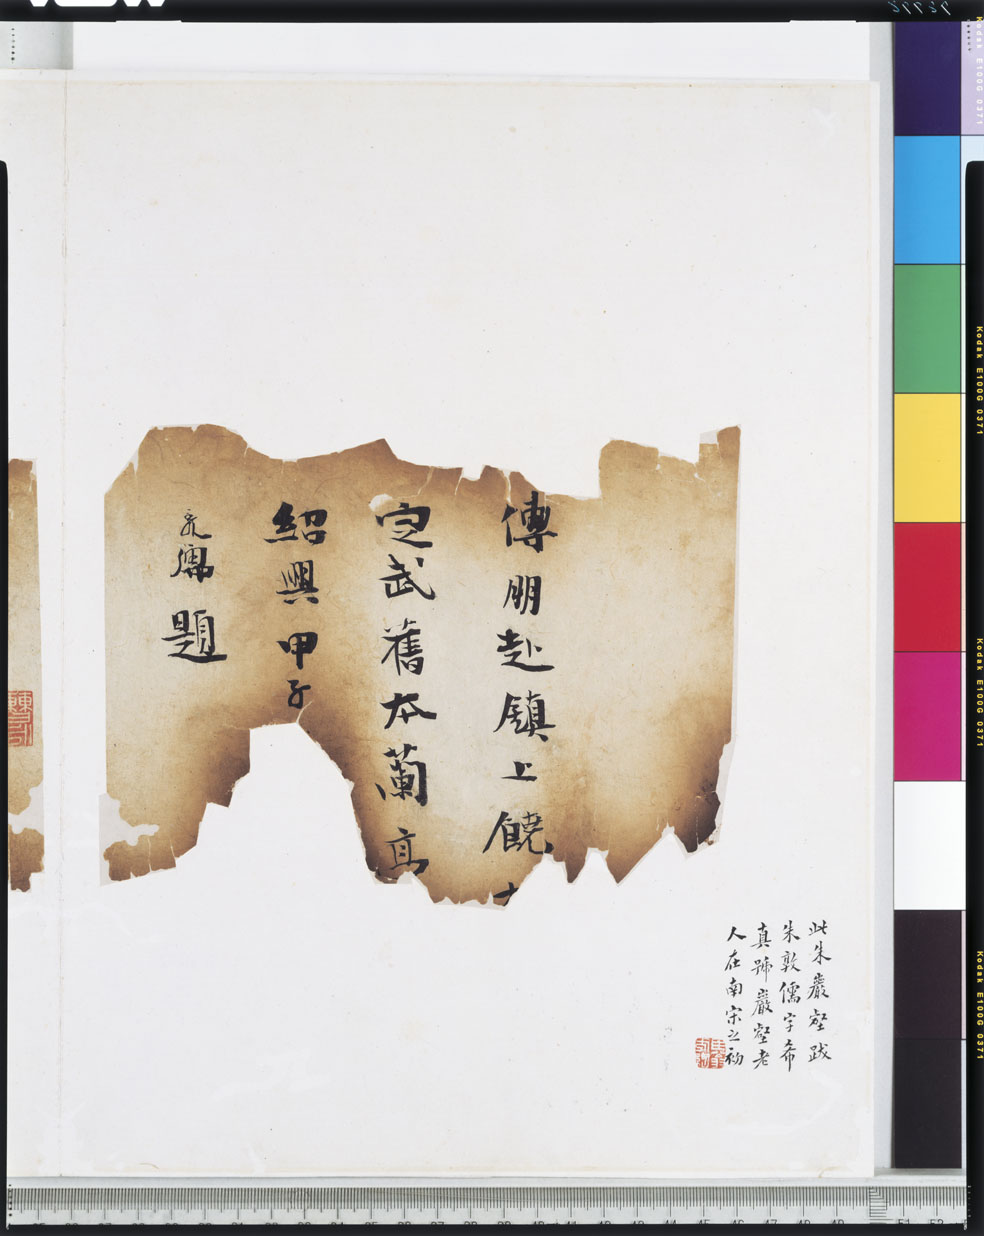 傅朋赴鎮上饒
定武舊本蘭亭
紹興甲子
題
此朱巖壑跋
朱敦儒字希
真號巖壑老
人在南宋之初
Kodak E100G 0371
Kodak E100G 0371
Kodak E100G 0371
Kodak E100G 0371